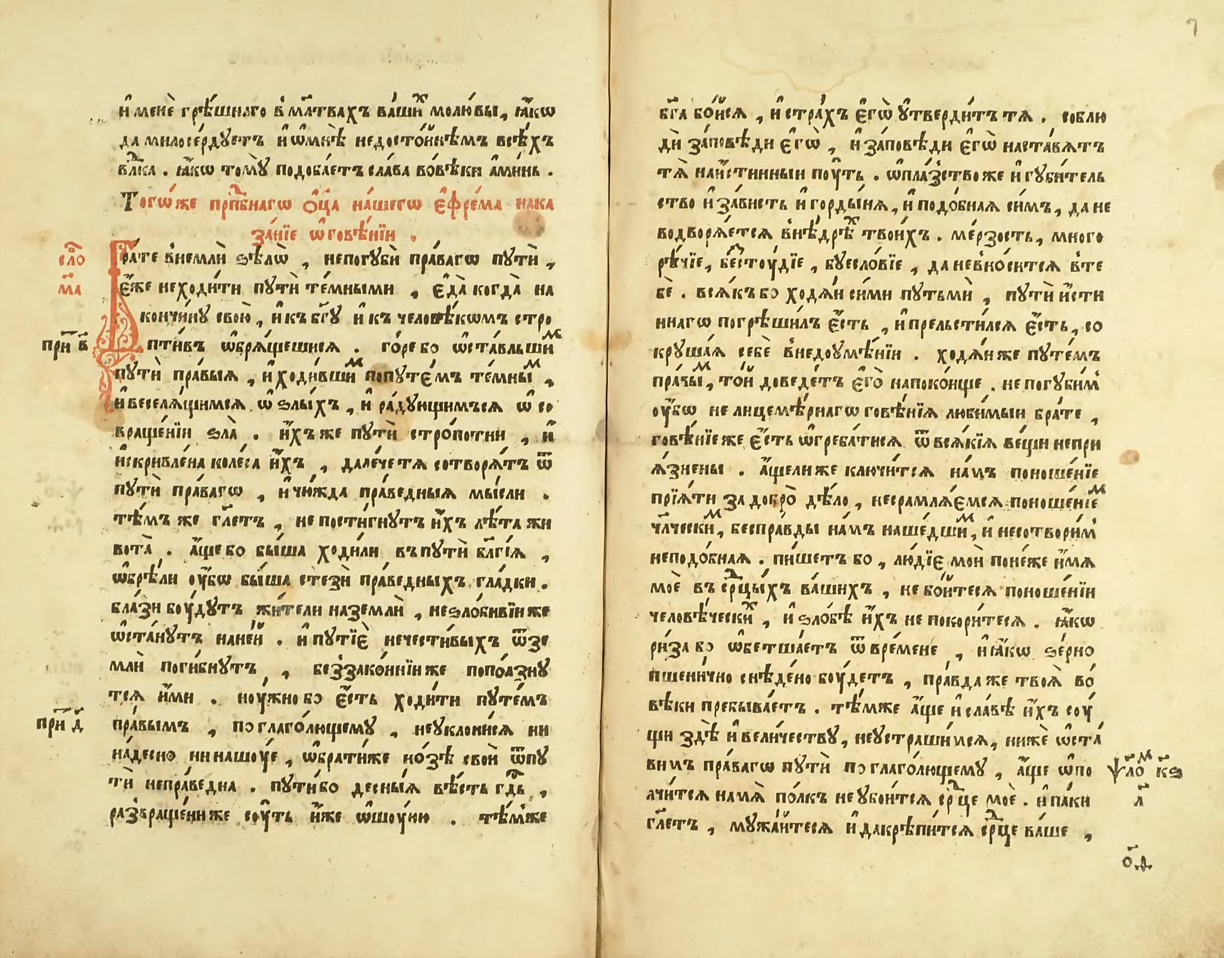 и҆ менѐ грѣ́шнаго в̾ мл҃твахъ ва́ши́х молю́вы, ꙗ҆́кѡ
да милосе́рдуетъ и҆ѡ҆мнѣ̀ недосто́йнѣмъ все́хъ
влⷣка . ꙗ҆́кѡ томꙋ̀ подоба́етъ сла́ва во́вѣки а҆ми́нь .
Тогѡ́же прпⷣбнагѡ ѻ҆ц҃а на́шегѡ є҆фре́ма нака
за́нїе ѡ҆ говѣ́нїи .
сло́
ма
Бра́те вне́мли ѕѣ́лѡ , непогꙋбѝ пра́вагѡ пꙋтѝ ,
є҆́же неходи́ти пꙋтѝ те́мными , є҆да̀ когда̀ на
кончи́нꙋ свою̀ , и҆ къ бг҃ꙋ и҆ къ человѣ́кѡмъ стро
при́ в
пти́въ ѡ҆бря́щешися . го́ре бо ѡ҆ста́вльши́м
пꙋтѝ пра́выя , и҆ ходи́вши́м попꙋте́мъ те́мны́м ,
и҆ веселя́щимся ѡ҆ ѕлы́хъ , и҆ ра́дꙋющимъся ѡ҆ со
враще́нїи ѕла̀ . и҆́хъ же пꙋтїѐ стропо́тни , и҆
и҆скривле́на коле́са и҆́хъ , дале́че тя сотворя́тъ ѿ
пꙋтѝ пра́вагѡ , и҆ чю́жда пра́ведныя мы́сли .
тѣ́мъ же гл҃етъ , не пости́гнꙋтъ и҆́хъ лѣ́та жи
вота̀ . а҆́ще бо бы́ша ходи́ли въ пꙋтѝ бл҃гі́я ,
ѡ҆брѣ́ли ᲂу҆́бѡ бы́ша стезѝ пра́ведныхъ гла́дки .
бла́зи бꙋ́дꙋтъ жи́тели наземлѝ , неѕло́бивїи же
ѡ҆ста́нꙋтъ на не́й . и҆ пꙋтїѐ нечести́выхъ ѿ зе
млѝ поги́бнꙋтъ , беззако́ннїи же попо́лзнꙋ
тся и҆́ми . нꙋ́жно бо є҆́сть ходи́ти пꙋте́мъ
при́ д
пра́вымъ , по глаго́лющемꙋ , неꙋклони́ся ни
на́десно ни на шꙋ́е , ѡ҆брати́же но́зѣ своѝ ѿ пꙋ
тѝ непра́ведна . пꙋти́ бо десны́я вѣ́сть гдⷭ҇ь ,
развраще́ни же сꙋ́ть и҆̀же ѡ҆шꙋ́юю . тѣ́мже
бг҃а бо́йся , и҆ стра́хъ є҆гѡ̀ ᲂу҆тверди́тъ тя . соблю
дѝ за́повѣди є҆гѡ̀ , и҆ за́повѣди є҆гѡ̀ наста́вятъ
тя̀ на и҆́стинныи пꙋ́ть . ѡ҆пла́зство же и҆ гꙋби́тель
ство и҆ за́висть и҆ горды́ня , и҆ подо́бная си́мъ , да не
водворя́ется в̾ нѣ́дрѣ́х твои́хъ . ме́рзость , много
рѣ́чїе , бестꙋ́дїе , бꙋесло́вїе , да не в̾но́сится в̾ те
бѐ . вся́къ бо ходя́и си́ми пꙋтьмѝ , пꙋтѝ и҆́сти
ннагѡ погрѣши́лъ є҆́сть , и҆ прельсти́лся є҆́сть , со
крꙋша́я себѐ в̾ недоꙋмѣ́нїи . ходя́и же пꙋте́мъ
пра́вы́м , то́й доведе́тъ є҆го̀ на поко́ище . не погꙋби́м
ᲂу҆́бѡ не лицемѣ́рнагѡ говѣ́нїя люби́мыи бра́те ,
говѣ́нїе же є҆́сть ѡ҆греба́тися ѿ вся́кїя ве́щи непри
я́знены . а҆́ще ли же ключи́тся на́мъ поноше́нїе
прїя́ти за до́бро дѣ́ло , несрамля́емся поноше́нїе́м
чл҃чески́м , бесправды на́мъ наше́дши́м , и҆ несотвори́м
неподо́бная . пи́шетъ бо , лю́дїе мои̂ поне́же и҆́мя
моѐ въ ср҃цы́хъ ва́шихъ , не бо́йтеся поноше́нїи
человѣ́чески́х , и҆ ѕло́бѣ и҆́хъ не покори́теся . ꙗ҆́кѡ
ри́за бо ѡ҆бетша́етъ ѿ вре́мене , и҆ ꙗ҆́кѡ зе́рно
пшени́чно снѣ́дено бꙋ́детъ , пра́вда же твоя̀ во
вѣ́ки пребыва́етъ . тѣ́мже а҆́ще и҆ сла́вѣ и҆́хъ сꙋ́
щи здѣ̀ и҆ вели́честву , неꙋстраши́мся , нижѐ ѡ҆ста́
вимъ пра́вагѡ пꙋтѝ по глаго́лющемꙋ , а҆́ще ѡ҆по
ѱало́м кѕ
лчи́тся на мя̀ по́лкъ не ᲂу҆бои́тся ср҃це моѐ . и҆ па́ки
л
гл҃етъ , мꙋжа́йтеся и҆ да крѣпи́тся ср҃це ва́ше ,